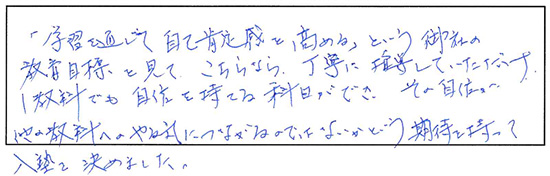 「学習を通じて自己肯定感を高める」という御社の
教育目標を見て、こちらなら、丁寧に指導していただけ、
1教科でも自信を持てる科目ができ、その自信が
他の教科へのやる気につながるのではないかという期待を持って
入塾を決めました。